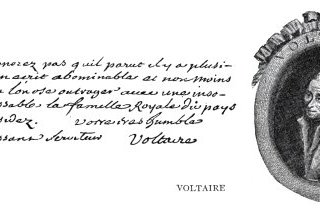 norez pas qu'il parut il y a plusi-
n ecrit abominable et non moins
l'on ose outrager avec une inso-
ssable la famille Royale du pays
sidez. votre tres humble
ssant serviteur Voltaire
VOLTAIRE